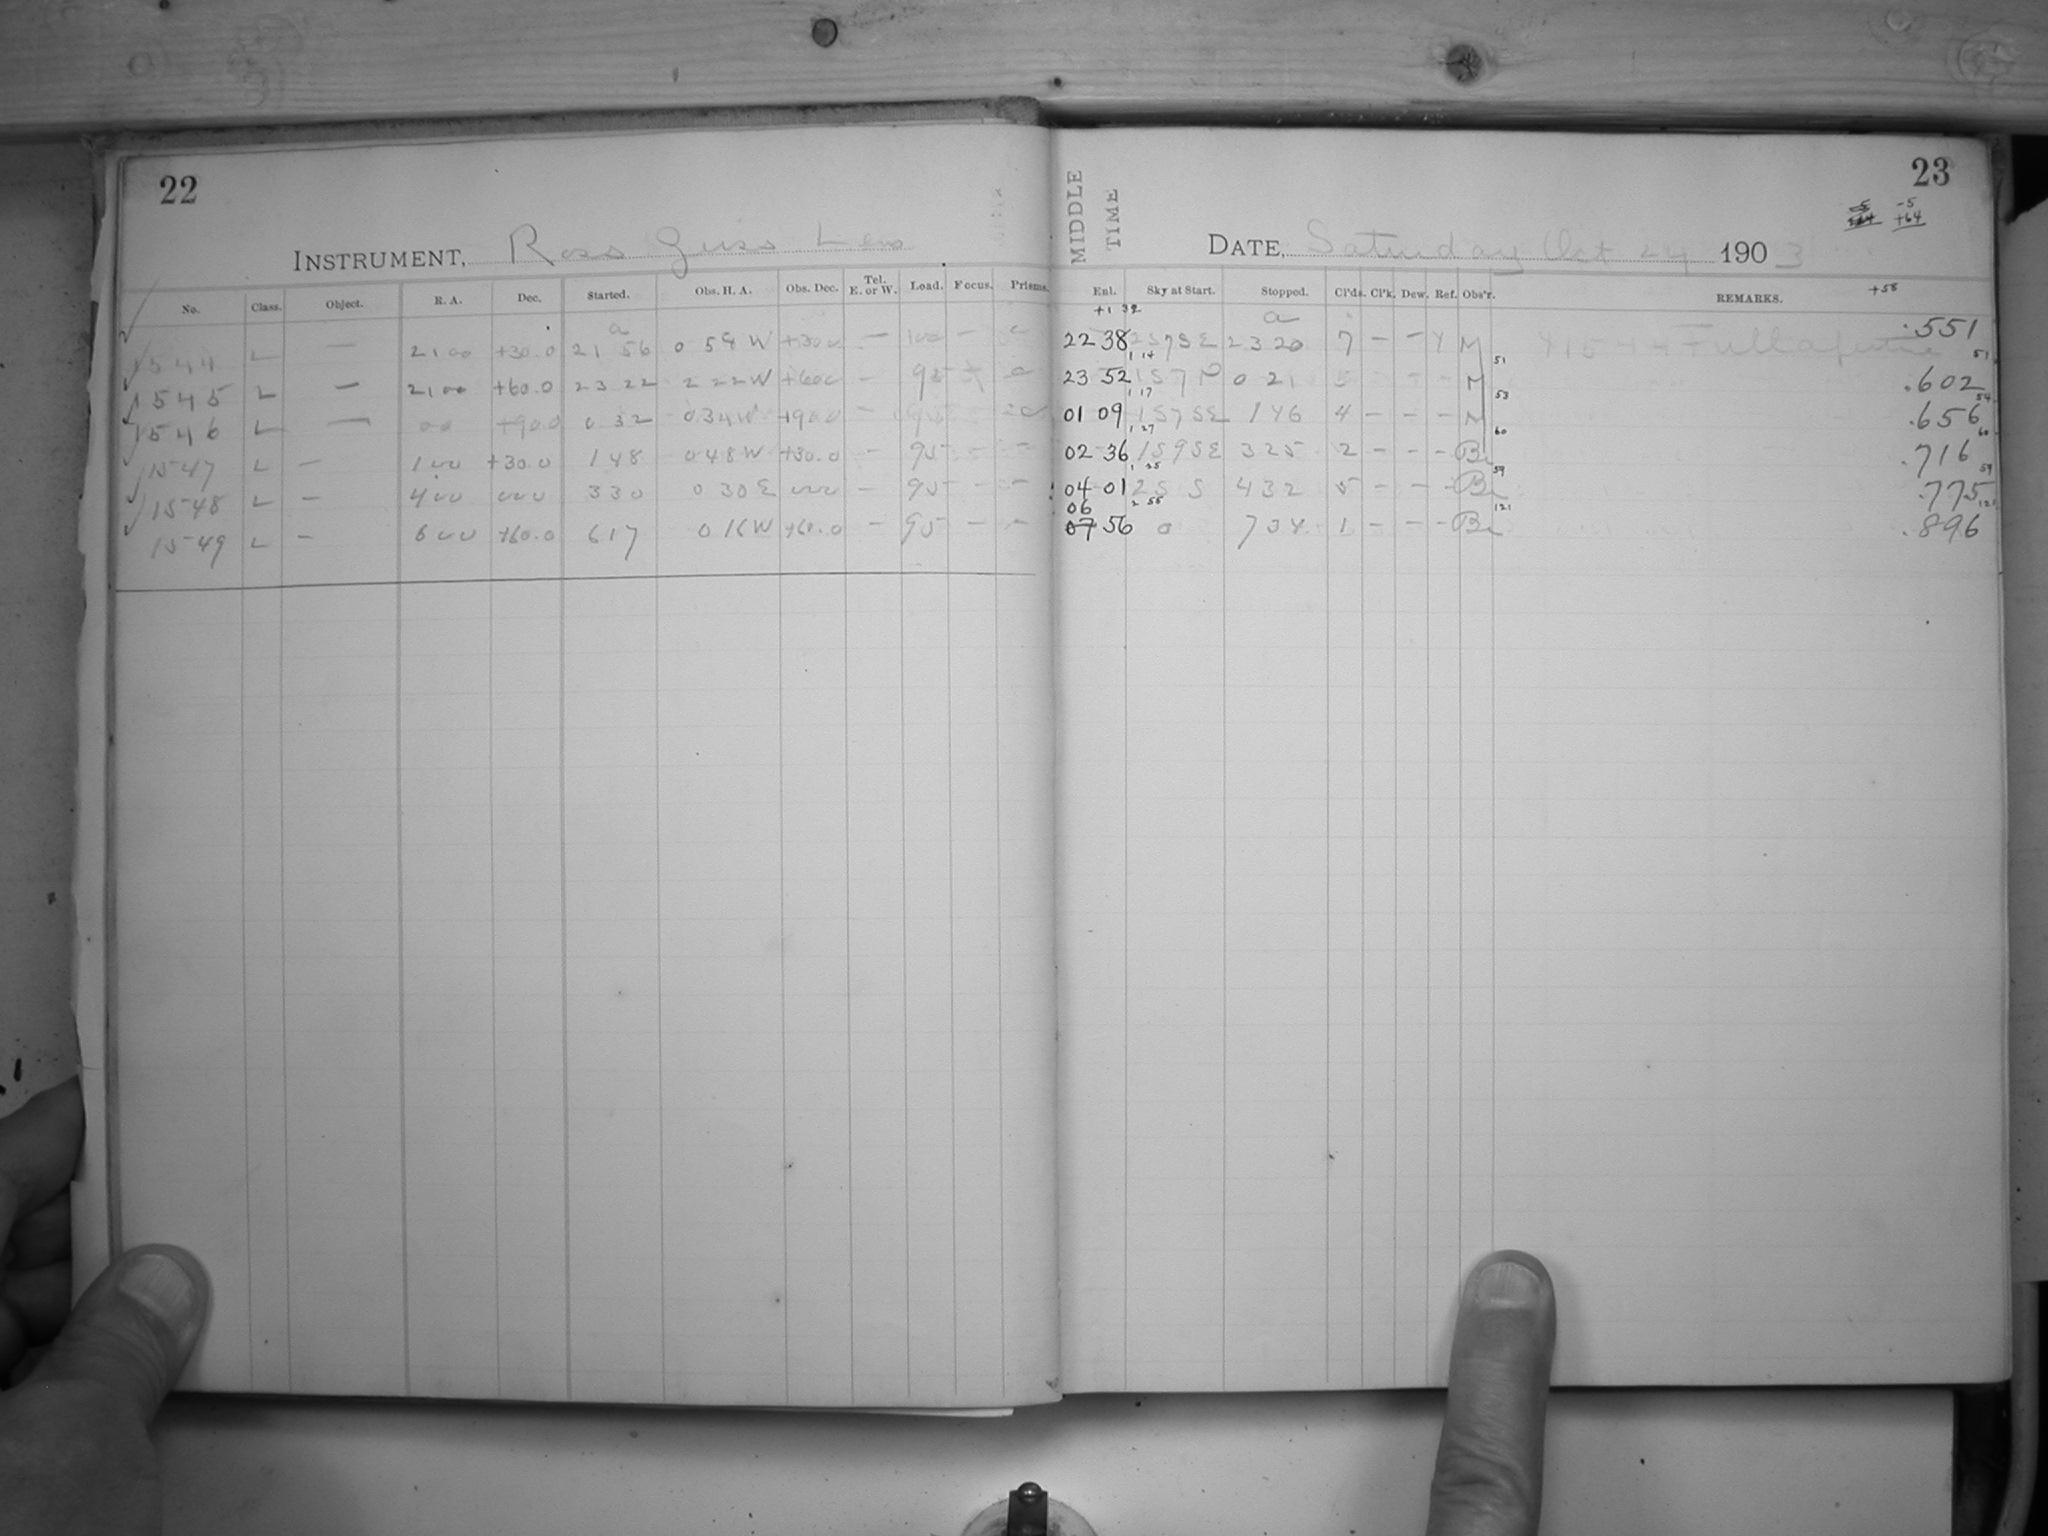 22
INSTRUMENT, Ross Lens
No. Class. Object. R. A. Dec. Started. Obs. H. A. Obs. Dec. Tel. E. or W. Load. Focus. Prisms.
a
1544 L — 21 00 +30.0 21 56 0 58 W +30.0 — 100 —
1545 L — 21 00 +60.0 23 22 2 22 W +60.0 — 95
1546 L — 0 0 +90.0 0 32 0 34 W +90.0 — 95 —
1547 L — 1 00 +30.0 1 48 0 48 W +30.0 — 95 — —
1548 L — 4 00 000 3 30 0 30 E 000 — 95 — —
1549 L — 6 00 +60.0 6 17 0 16 W +60.0 — 95 — —
MIDDLE TIME
23
-5
+64
DATE, Saturday Oct 24 1903
Enl. Sky at Start. Stopped. Cl'ds. Cl'k. Dew. Ref. Obs'r. REMARKS.
+1 32 a +58
22 38 2S7SE 23 20 7 — — Y M Y1544 Full aperture .551
1 14 51 51
23 52 1S7N 0 21 5 - - - M .602
1 17 53 54
01 09 1S7SE 1 46 4 — — — M .656
1 27 60 60
02 36 1S9SE 3 25 2 — — — Be .716
1 25 59 59
04 01 2S S 4 32 5 — — — Be .775
06 2 55 121 121
07 56 0 7 34 1 — — — Be .896